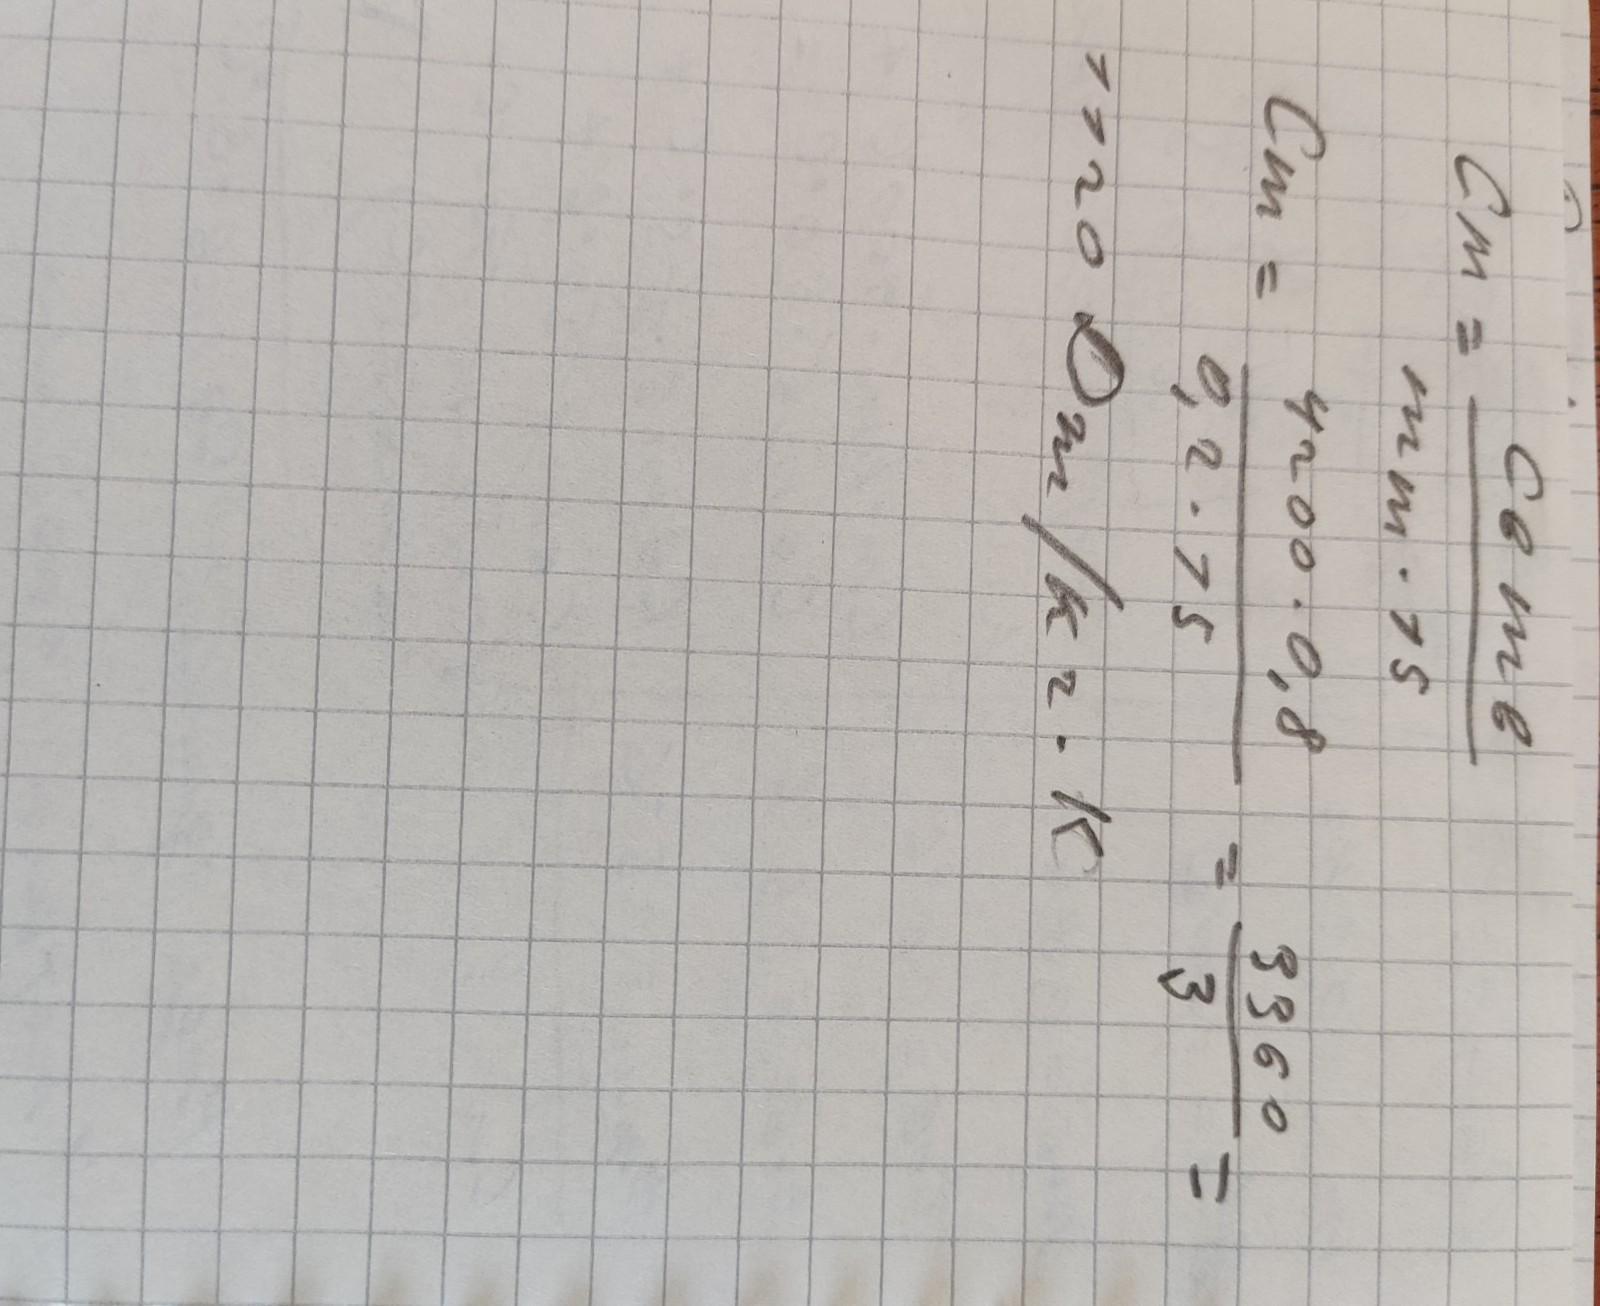 Cм = Cв mв / mм · 15
Cм = 4200 · 0,8 / 0,2 · 15 = 3360 / 3 =
1120 Дж/кг · К